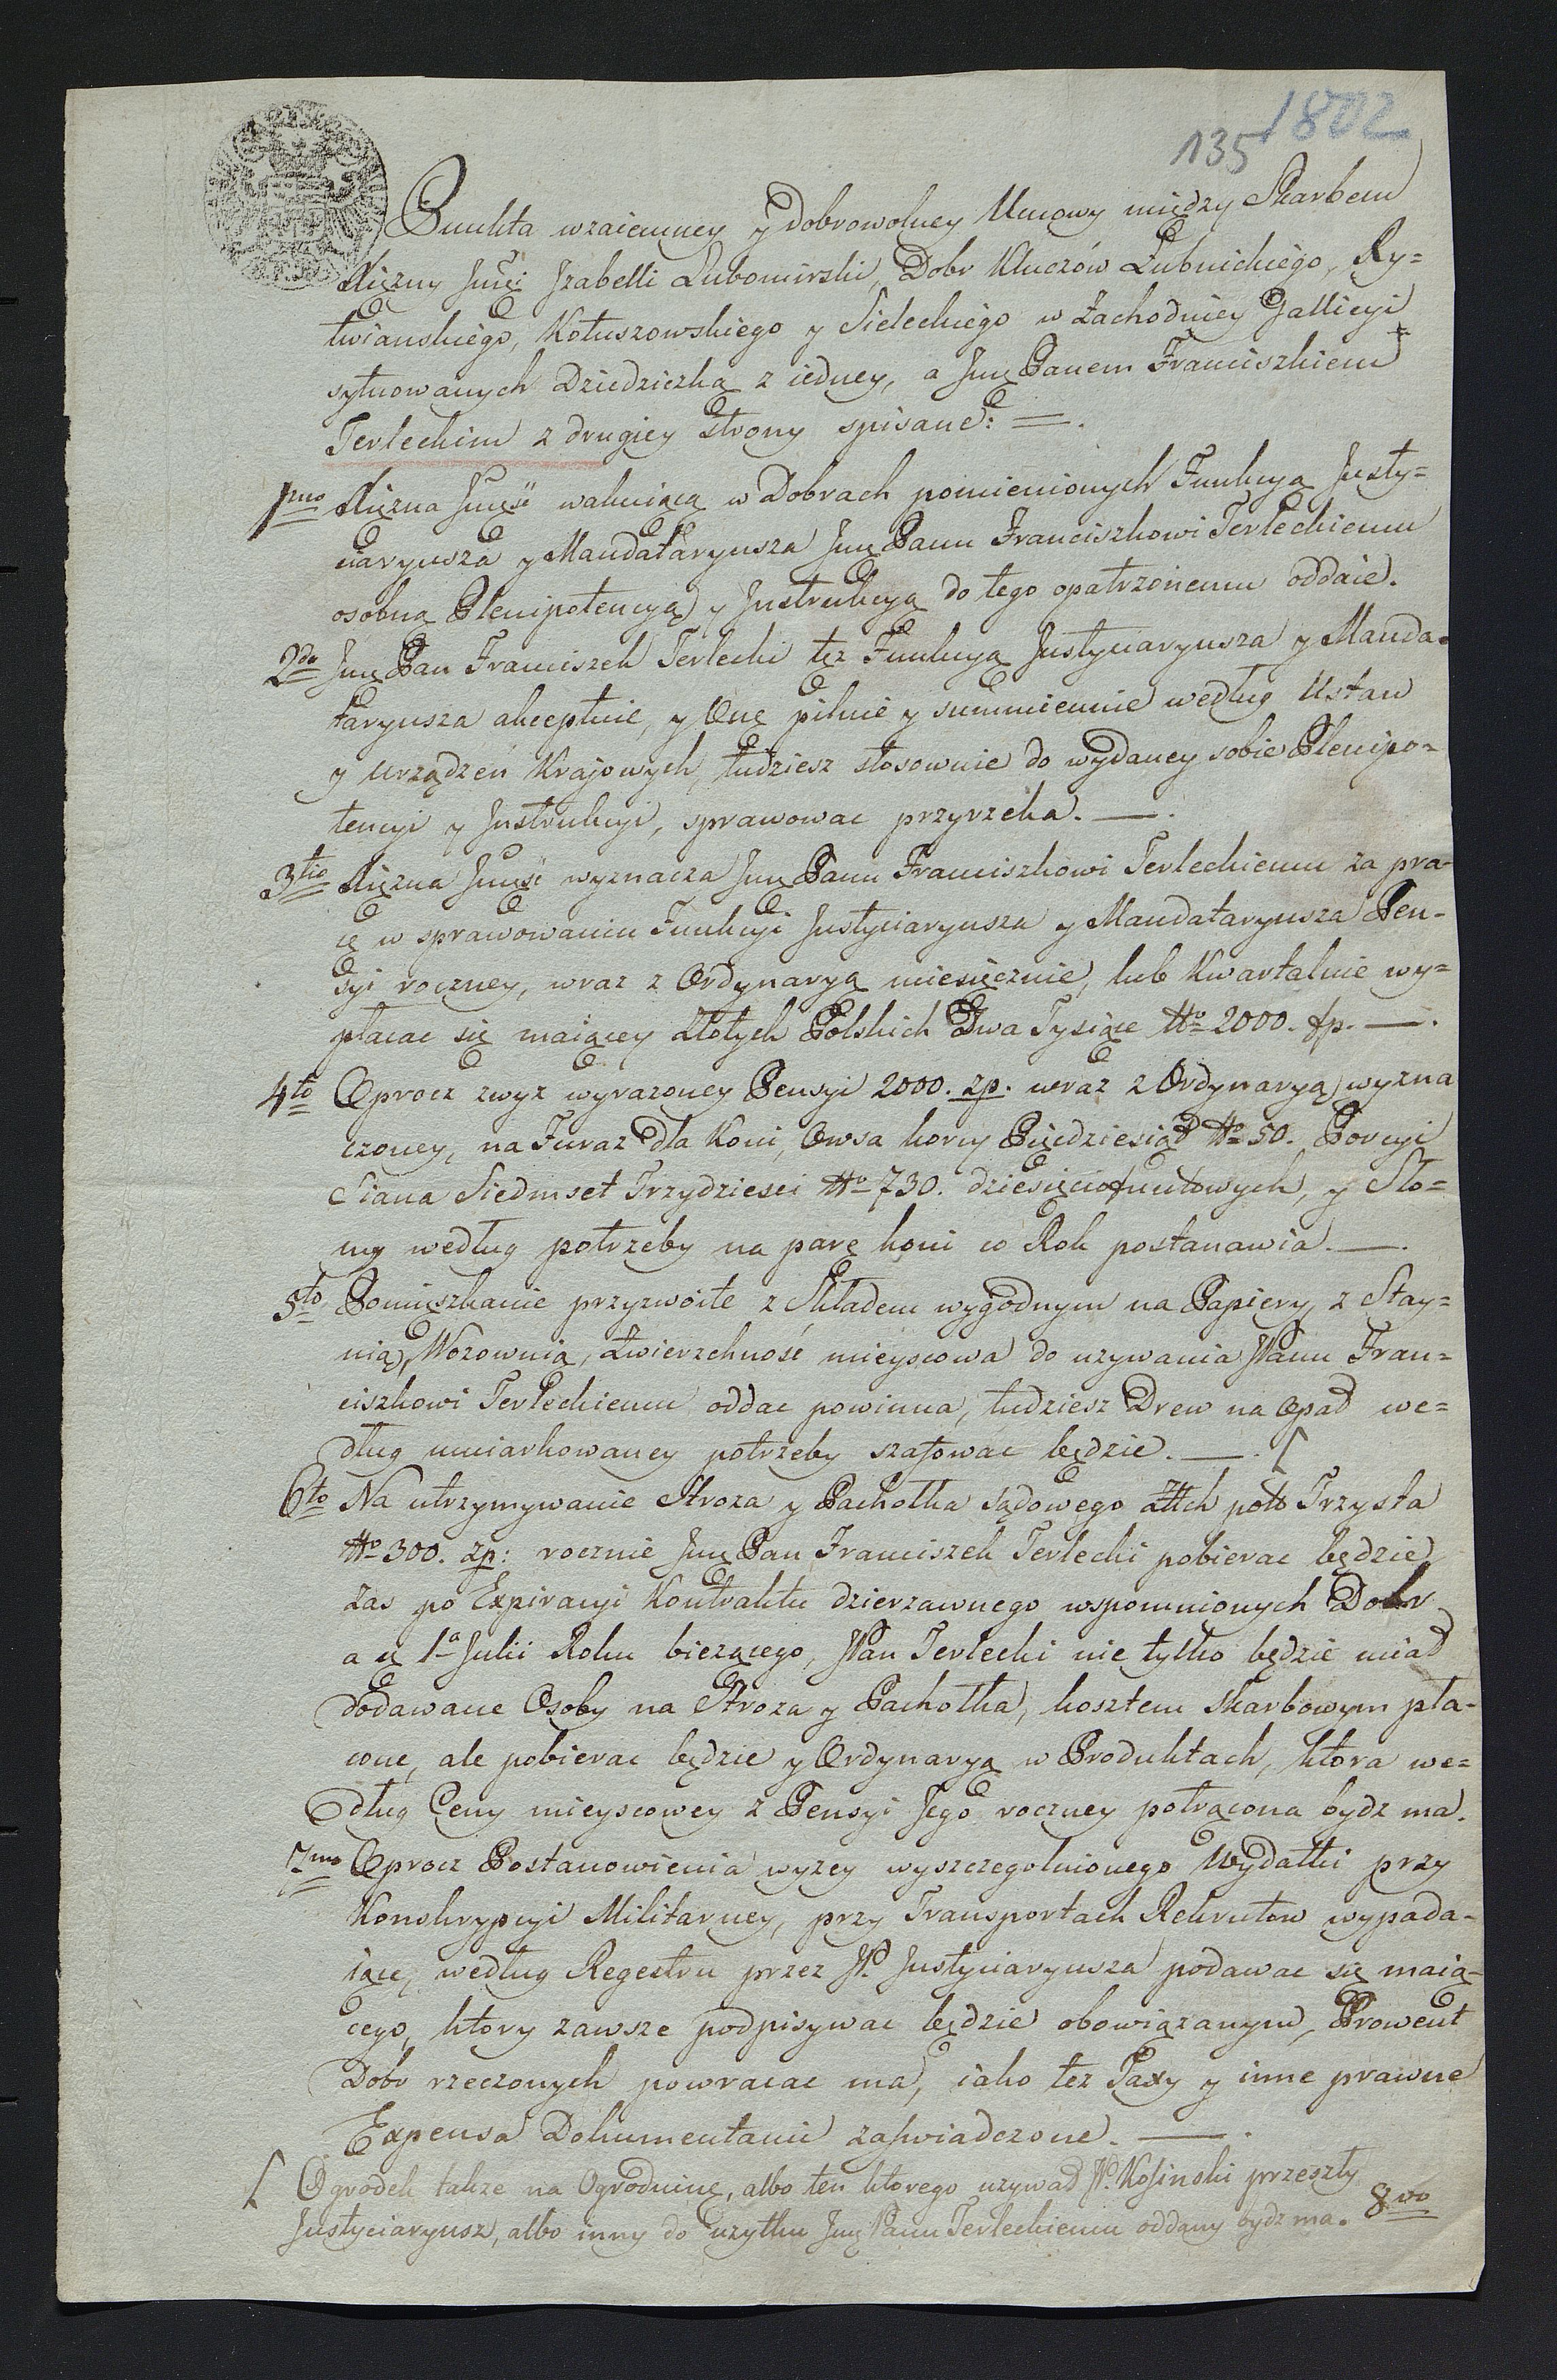 1802
135
Punkta wzaiemney y dobrowolney Umowy między Skarbem
Xiężny Jmę: Izabelli Lubomirski, Dobr Kluczów Łubnickiego, Ry=
twianskiego, Kotuszowskiego y Sieleckiego w Zachodniey Gallicyi
sytuowanych Dziedziczką z iedney, a Jmę Panem Franciszkiem
Terleckim z drugiey strony spisane: =.
1mo Xięzna Jmęść wakuiącą w Dobrach pomienionych Funkcyą Justy=
cyaryusza y Mandataryusza Jmę Panu Franciszkowi Terleckiemu
osobną Plenipotencyą y Instrukcyą do tego opatrzonemu oddaie.
2do Jmę Pan Franciszek Terlecki tęż Funkcyą Justycyaryusza y Manda=
taryusza akceptuie, y Onę pilnie y summiennie według Ustaw
y Urządzeń Krajowych, tudziesz stosownie do wydaney sobie Plenipo=
tencyi y Instrukcyi, sprawowac przyrzeka. —.
3tio Xięzna Jmęść wyznacza Jmę Panu Franciszkowi Terleckiemu za pra-
cę w sprawowaniu Funkcyi Justyciaryusza y Mandataryusza Pen-
syi roczney, wraz z Ordynaryą miesięcznie, lub Kwartalnie wy=
płacac się maiącey Złotych Polskich Dwa Tysiące No 2000. zp. —.
4to Oprocz zwyz wyrazoney Pensyi 2000. zp. wraz z Ordynaryą wyzna
czoney, na Furaz dla Koni, Owsa korcy Pięcdziesiąd No 50. Porcyi
Siana Siedmset Trzydziesci No 730. dziesięciofuntowych, y Sło=
my według potrzeby na parę koni co Rok postanawia. —.
5to Pomięszkanie przyzwoite z Składem wygodnym na Papiery, z Stay=
nią, Wozownią, Zwierzchność mieyscowa do uzywania JPanu Fran=
ciszkowi Terleckiemu oddac powinna, tudziesz Drew na Opał we=
dług umiarkowaney potrzeby szafować będzie. —. [
6to Na utrzymywanie Stroza y Pachołka sądowego Złtch pols Trzysta
No 300. zp: rocznie Jmę Pan Franciszek Terlecki pobierac będzie
zas po Expiracyi Kontraktu dzierzawnego wspomnionych Dobr
a a 1a Julii Roku biezącego, JPan Terlecki nie tylko będzie miał
dodawane Osoby na Stroza y Pachołka, kosztem Skarbowym pła-
cone, ale pobierac będzie y Ordynaryą w Produktach, ktora we=
dług Ceny mieyscowey z Pensyi Jego roczney potrącona bydz ma.
7mo Oprocz Postanowienia wyzey wyszczegolnionego Wydatki przy
Konskrypcyi Militarney, przy Transportach Rekrutow wypada-
iące, według Regestru przez JP. Justyciaryusza podawac się maią-
cego, ktory zawsze podpisywac będzie obowiązanym, Prowent
Dobr rzeczonych powracac ma, iako tez Taxy y inne prawne
Expensa Dokumentami zaswiadczone. —.
[ Ogrodek takze na Ogrodninę, albo ten ktorego uzywał JP. Kosinski przeszły
Justyciaryusz, albo inny do uzytku Jmę Panu Terleckiemu oddany bydz ma. 8vo